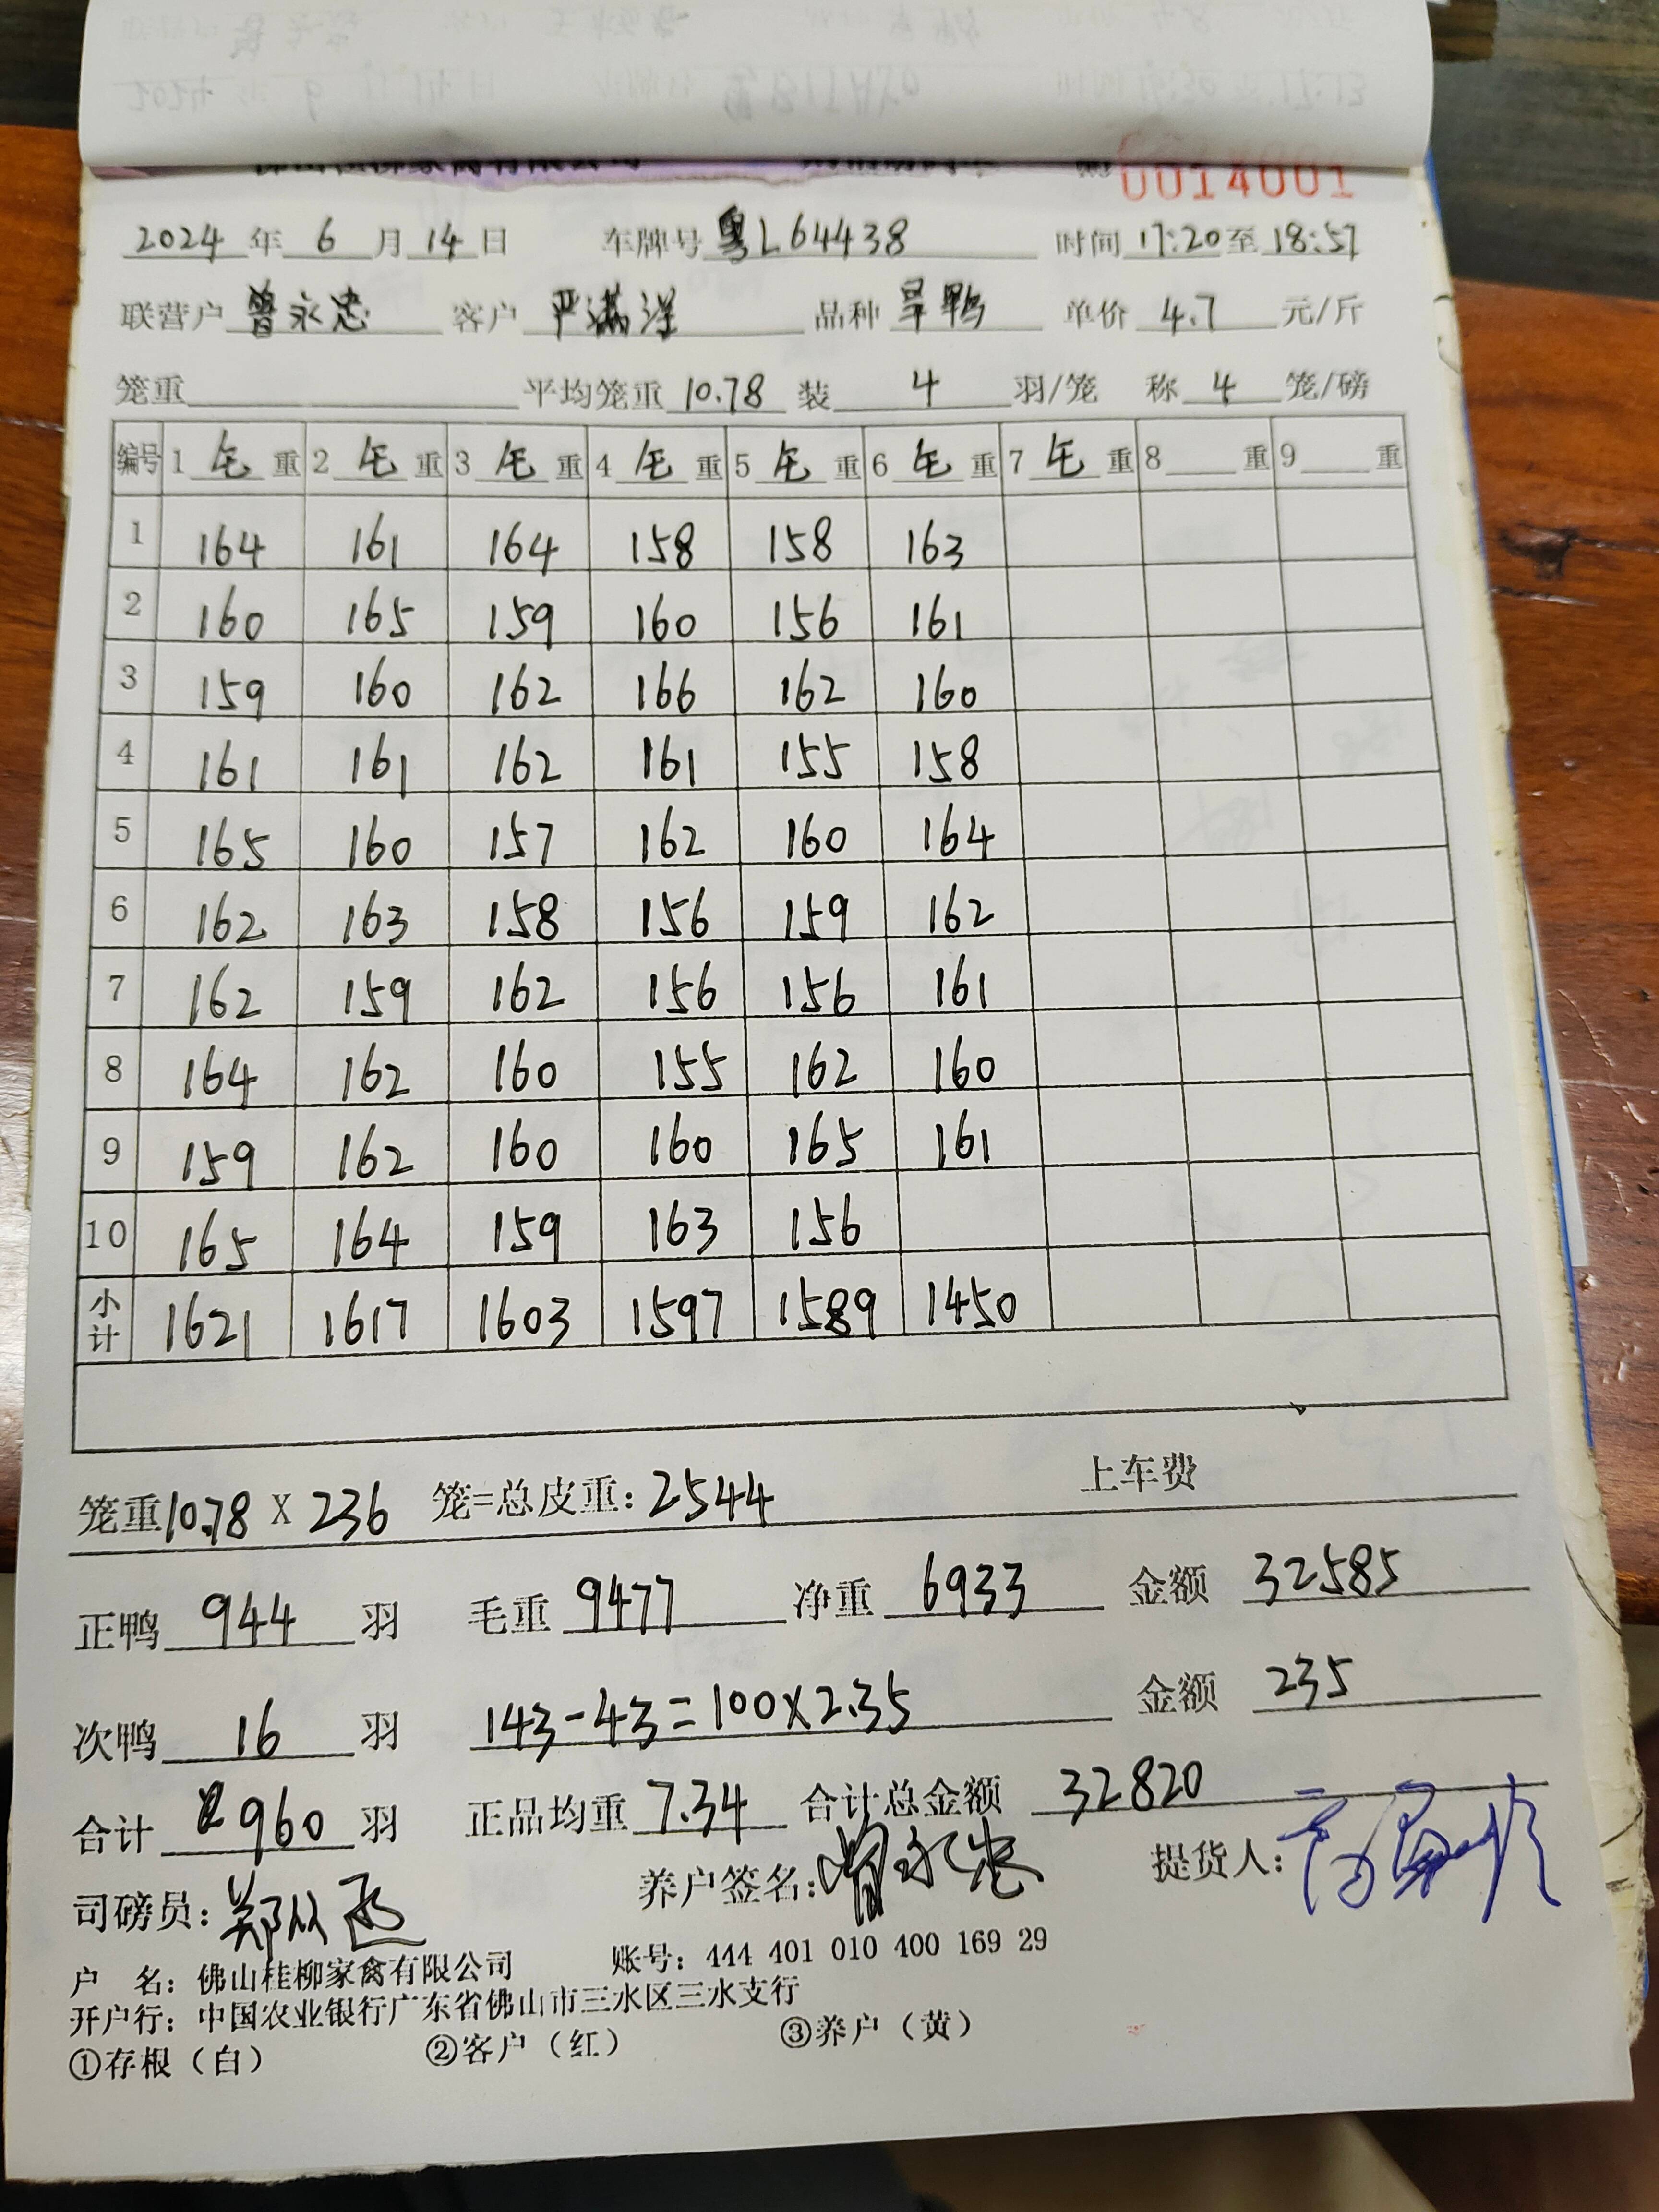 0014001
2024 年 6 月 14 日 车牌号 粤L64438 时间 17:20 至 18:57
联营户 曾永忠 客户 严满洋 品种 旱鸭 单价 4.7 元/斤
笼重 平均笼重 10.78 装 4 羽/笼 称 4 笼/磅
编号 1 毛 重 2 毛 重 3 毛 重 4 毛 重 5 毛 重 6 毛 重 7 毛 重 8 重 9 重
1 164 161 164 158 158 163
2 160 165 159 160 156 161
3 159 160 162 166 162 160
4 161 161 162 161 155 158
5 165 160 157 162 160 164
6 162 163 158 156 159 162
7 162 159 162 156 156 161
8 164 162 160 155 162 160
9 159 162 160 160 165 161
10 165 164 159 163 156
小计 1621 1617 1603 1597 1589 1450
笼重 10.78 X 236 笼=总皮重: 2544 上车费
正鸭 944 羽 毛重 9477 净重 6933 金额 32585
次鸭 16 羽 143-43=100X2.35 金额 235
合计 960 羽 正品均重 7.34 合计总金额 32820
司磅员: 郑从 养户签名: 曾永忠 提货人:
户 名: 佛山桂柳家禽有限公司 账号: 444 401 010 400 169 29
开户行: 中国农业银行广东省佛山市三水区三水支行
①存根(白) ②客户(红) ③养户(黄)